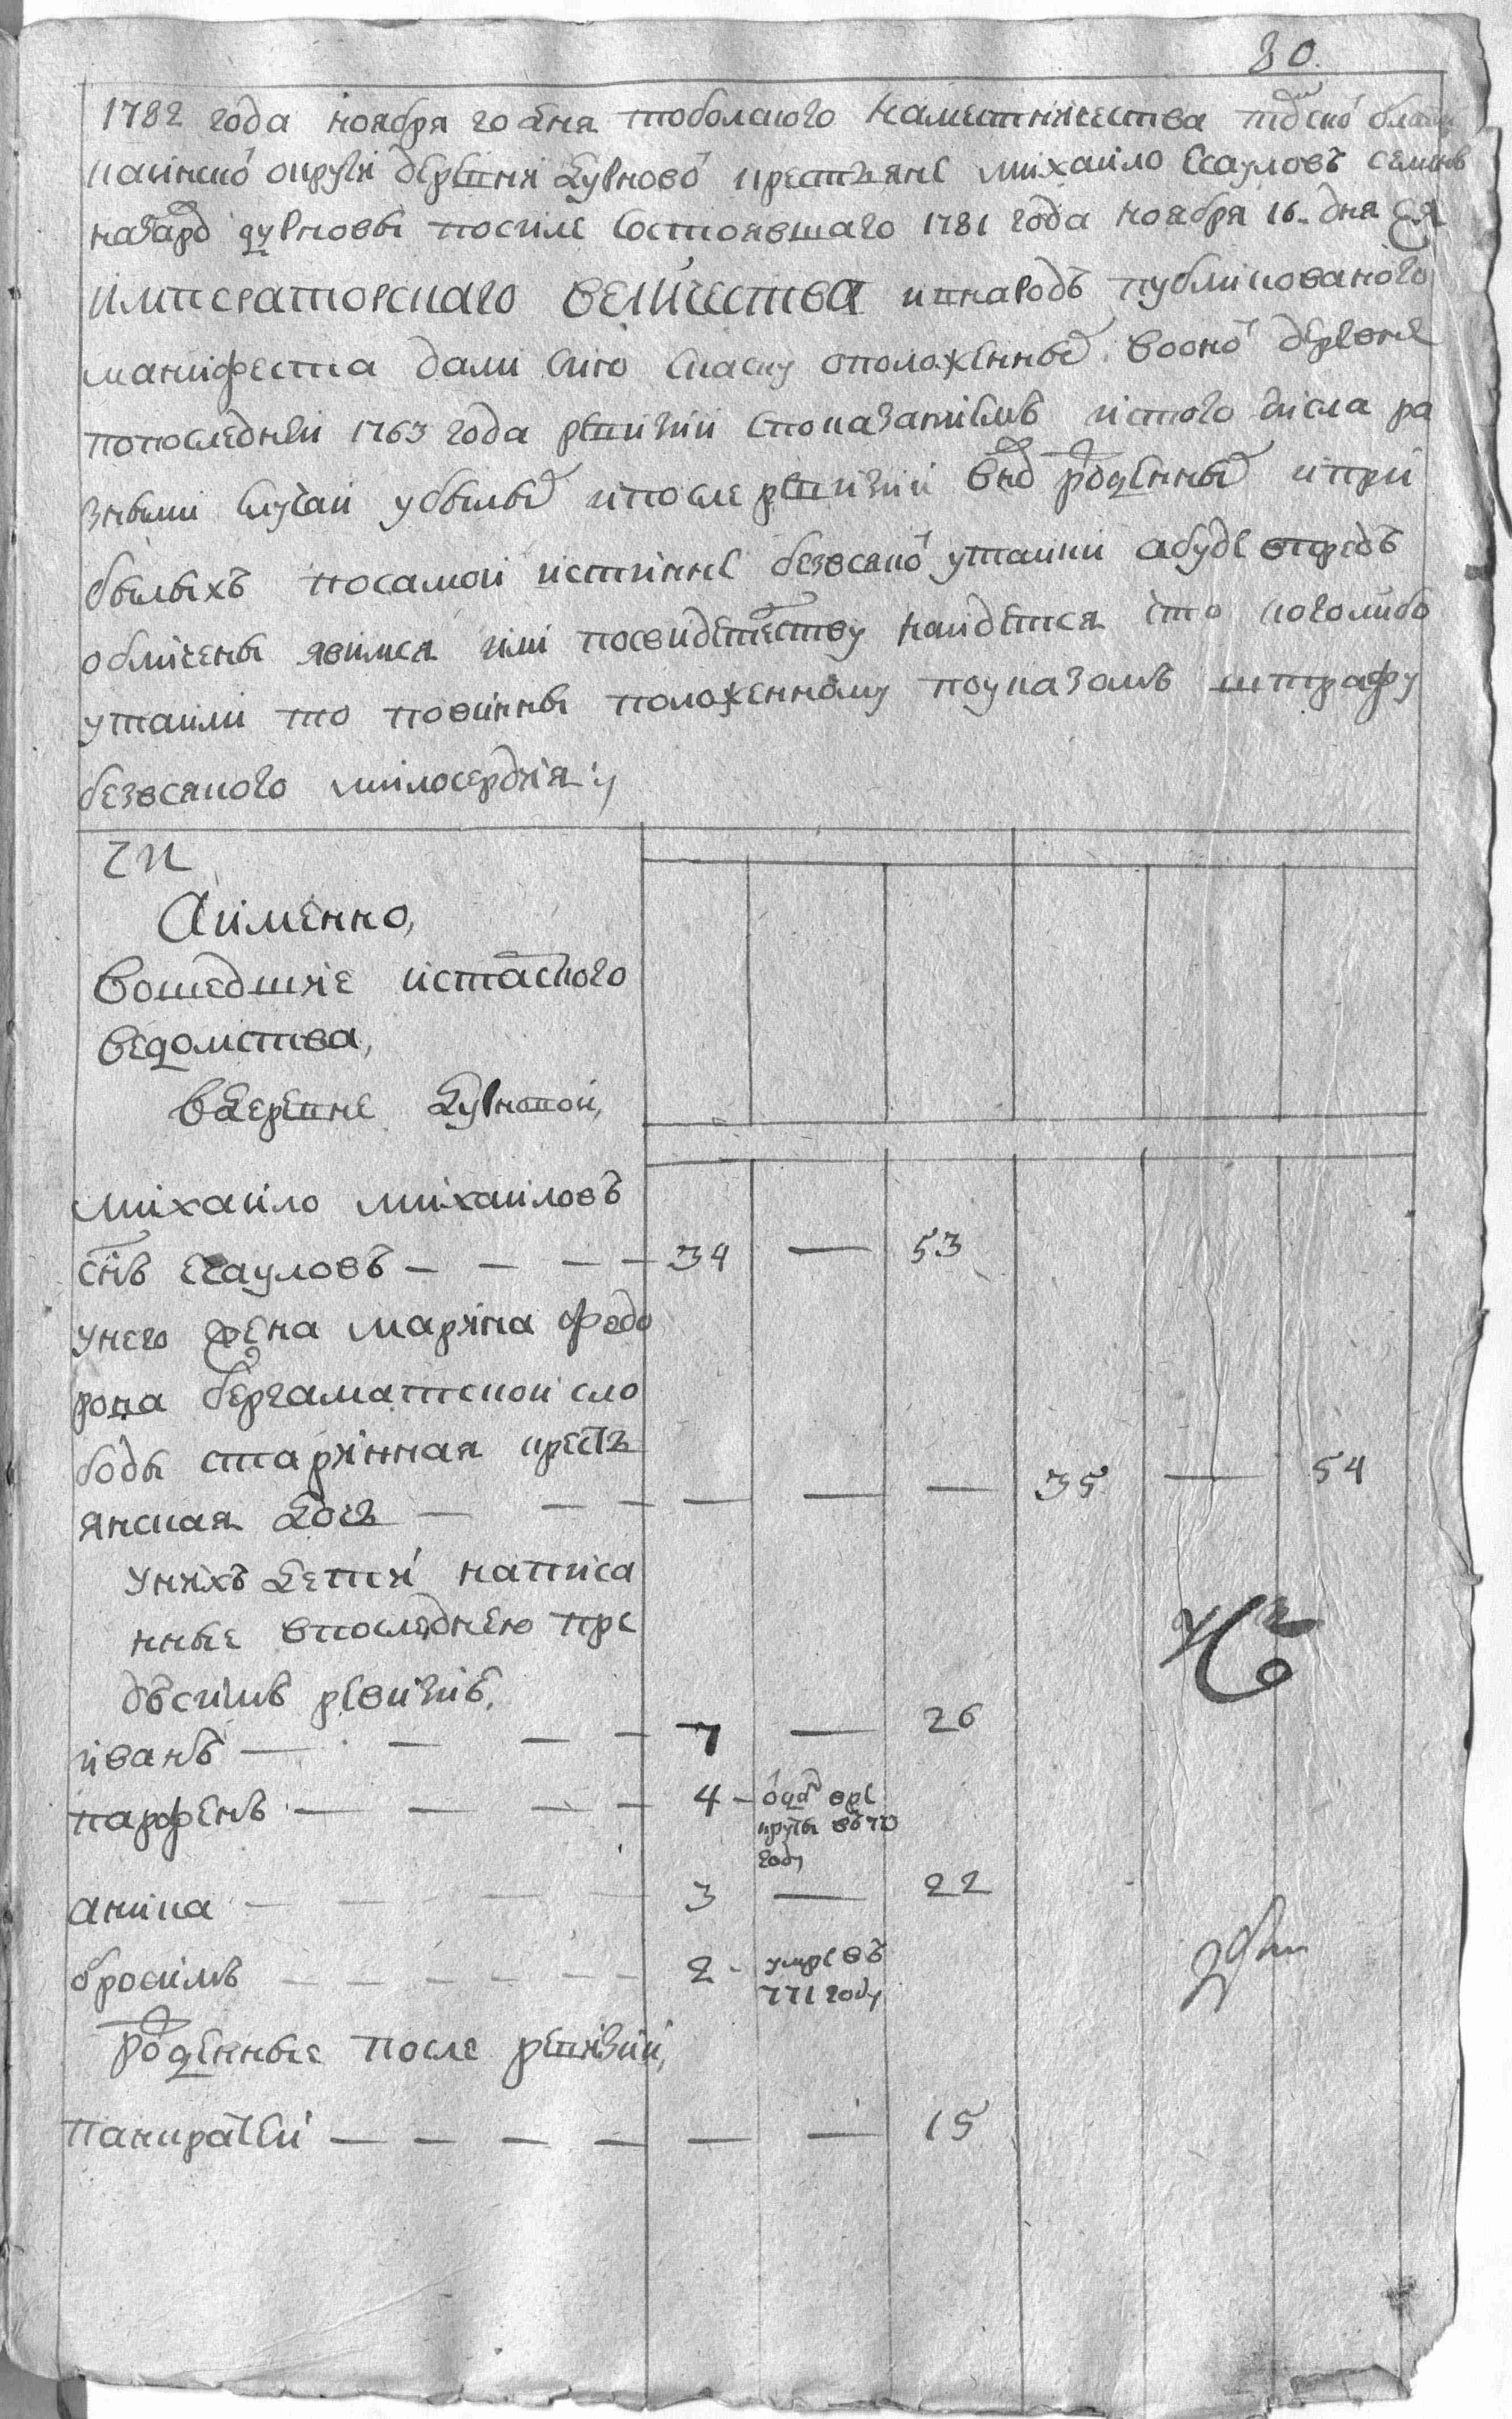 80.
1782 года ноября 20 дня тоболского наместничества томской области
каинской округи деревни Дувновой крестьяне михайло Есауловъ семенъ
назаров дувновы посиле состоявшаго 1781 года ноября 16. дня Ея
императорскаго величества инародъ публикованого
манифеста дали сию скаску оположенных воной деревне
попоследней 1763 года ревизии споказаниемъ истого числа ра
зными случаи убылых ипосле ревизии вновь рожденных ипри
былыхъ посамой истинне безвсякой утайки абуде впредь
обличены явимся или посвидетельству найдется что коголибо
утаили то повинны положенному поуказамъ штрафу
безвсякого милосердия :,
Аименно,
вошедшие истарского
ведомства,
вдеревне Дувновой,
михайло михайловъ
снъ есауловъ — — — — 34 — 53
унего жена марина федо
рова бергаматской сло
боды старинная кресть
янская дочь — — — — — — 35 — 54
унихъ дети написа
нные впоследнею пре
дъсимъ ревизию,
иванъ — — — — 7 — 26
парфенъ — — — — 4 - отдан вре
круты въ 770
году
аника — — — — 3 — 22
ефросимъ — — — — 2 - умре въ
771 году
рожденные после ревизии,
панкратей — — — — — — 15